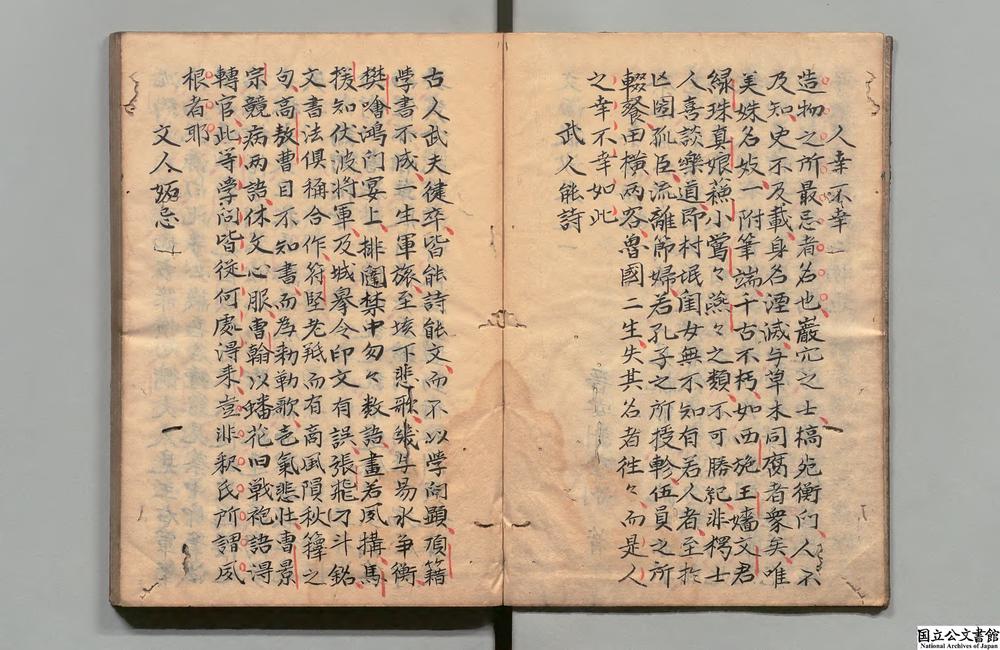 人幸不幸
造物之所最忌者名也巖穴之士槁死衡门人不
及知史不及載身名湮滅与草木同腐者衆矣唯
美姝名妓一附筆端千古不朽如西施王嬙文君
緑珠真娘蘓小鶯々燕々之類不可勝紀非樗士
人喜談樂道即村氓闺女無不知有若人者至於
凶图孤臣流離節婦若孔子之所授軫伍員之所
輟餐田横兩客魯國二生失其名者往々而是人
之幸不幸如此
武人能詩
古人武夫健卒皆能詩能文而不以学问顕項籍
学書不成一生軍旅至垓下悲歌幾与易水争衡
樊噲鴻门宴上排闥禁中匆々数語畫若夙搆馬
援知伏波将軍及城皋令印文有誤張飛刁斗銘
文書法俱稱合作符堅老羝而有高風隕秋籜之
句高敖曹目不知書而為勅勒歌壱氣悲壮曹景
宗競病两語休文心服曹翰以蟠花旧戦袍語得
轉官此等学问皆従何處淂来豈非釈氏所謂夙
根者耶
文人
忌
国立公文書館
National Archives of Japan